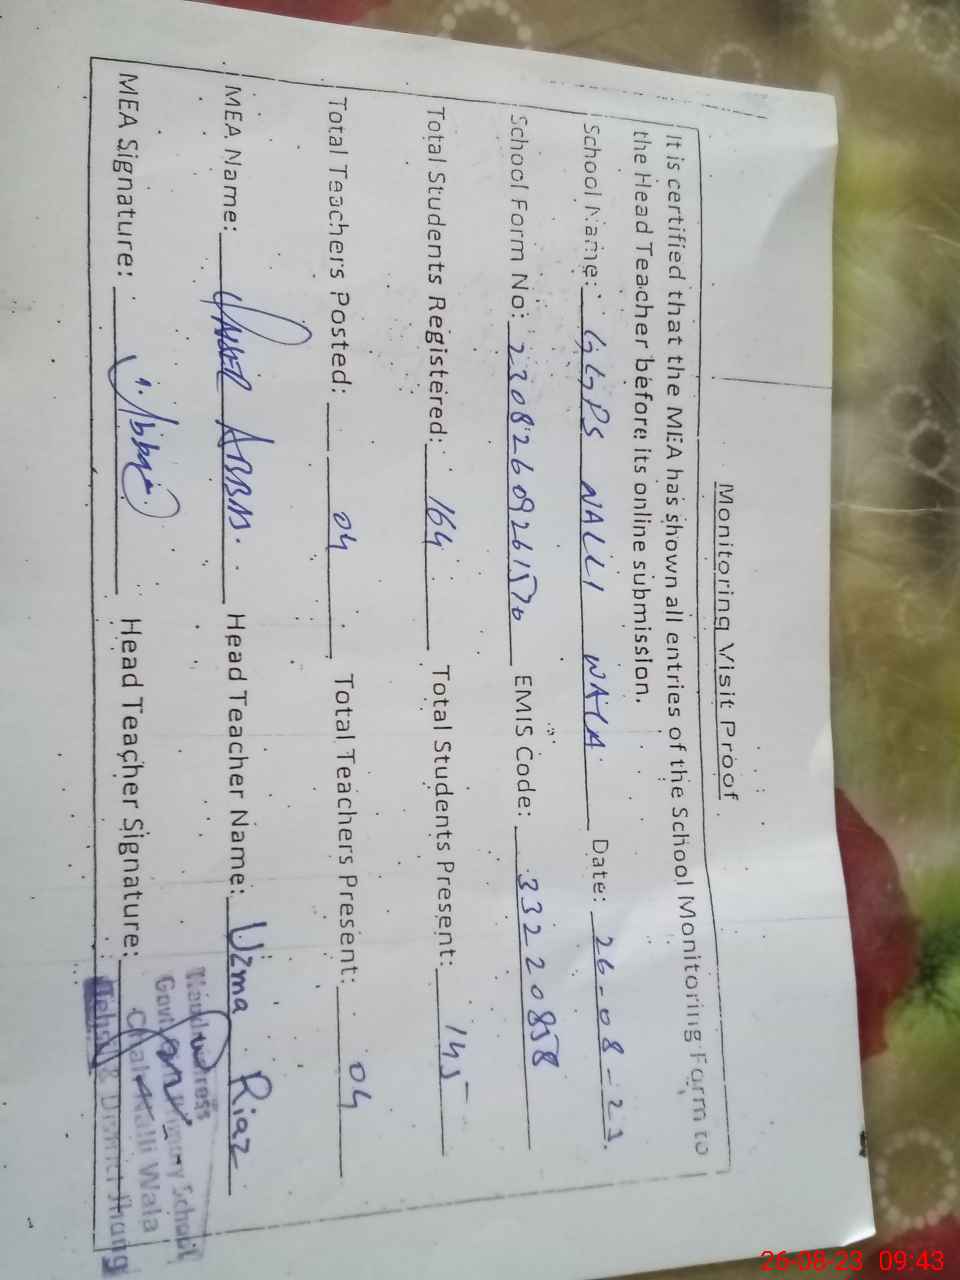 Monitoring Visit Proof
It is certified that the MEA has shown all entries of the School Monitoring Form to
the Head Teacher before its online submission.
School Name: GGPS NALLI WALA Date: 26-08-23.
School Form No: EMIS Code: 33220858
Total Students Registered: 164 Total Students Present: 145
Total Teachers Posted: 04 Total Teachers Present: 04
MEA Name: ABBAS. Head Teacher Name: Uzma Riaz
MEA Signature: Abbas Head Teacher Signature:
Headmistress
Govt. Primary School
Chah Nalli Wala
Tehsil & District Jhang
26-08-23 09:43